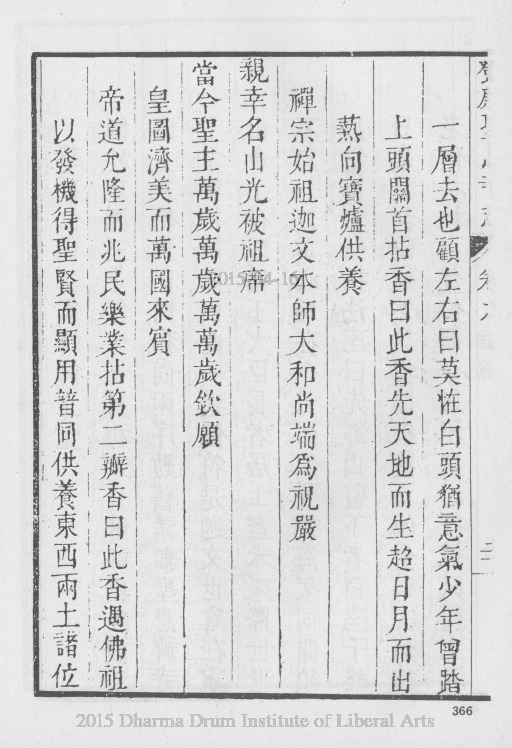 一層去也顧左右曰莫恠白頭猶意氣少年曾踏
上頭關首拈香曰此香先天地而生超日月而出
爇向寶爐供養
禪宗始祖迦文本師大和尚端爲祝嚴
親幸名山光被祖席
當今聖主萬歲萬歲萬萬歲欽願
皇圖濟美而萬國來賓
帝道允隆而兆民樂業拈第二瓣香曰此香遇佛祖
以發機得聖賢而顯用普同供養東西兩土諸位
366
2015 Dharma Drum Institute of Liberal Arts